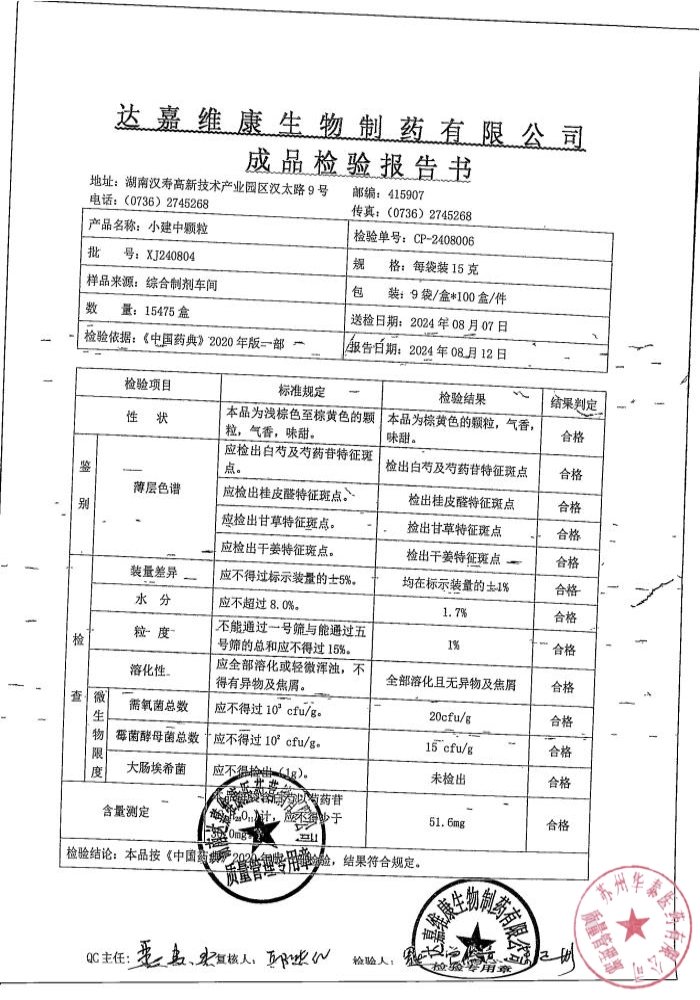 达嘉维康生物制药有限公司
成品检验报告书
地址：湖南汉寿高新技术产业园区汉太路9号 邮编：415907
电话：(0736) 2745268 传真：(0736) 2745268
产品名称：小建中颗粒 检验单号：CP-2408006
批 号：XJ240804 规 格：每袋装15克
样品来源：综合制剂车间 包 装：9袋/盒*100盒/件
数 量：15475盒 送检日期：2024年08月07日
检验依据：《中国药典》2020年版一部 报告日期：2024年08月12日
检验项目 标准规定 检验结果 结果判定
性 状 本品为浅棕色至棕黄色的颗粒，气香，味甜。 本品为棕黄色的颗粒，气香，味甜。 合格
鉴别 薄层色谱 应检出白芍及芍药苷特征斑点。 检出白芍及芍药苷特征斑点 合格
应检出桂皮醛特征斑点。 检出桂皮醛特征斑点 合格
应检出甘草特征斑点。 检出甘草特征斑点 合格
应检出干姜特征斑点。 检出干姜特征斑点 合格
检查 装量差异 应不得过标示装量的±5%。 均在标示装量的±1% 合格
水 分 应不超过8.0%。 1.7% 合格
粒 度 不能通过一号筛与能通过五号筛的总和应不得过15%。 1% 合格
溶化性 应全部溶化或轻微浑浊，不得有异物及焦屑。 全部溶化且无异物及焦屑 合格
微生物限度 需氧菌总数 应不得过10³ cfu/g。 20cfu/g 合格
霉菌酵母菌总数 应不得过10² cfu/g。 15 cfu/g 合格
大肠埃希菌 应不得检出（1g）。 未检出 合格
含量测定 以芍药苷 计，应不得少于 51.6mg 合格
检验结论：本品按《中国药典》2020 检验，结果符合规定。
质量管理专用章
QC主任： 复核人： 检验人：
达嘉维康生物制药有限公司
检验专用章
苏州华 医药有限公司
质量管理